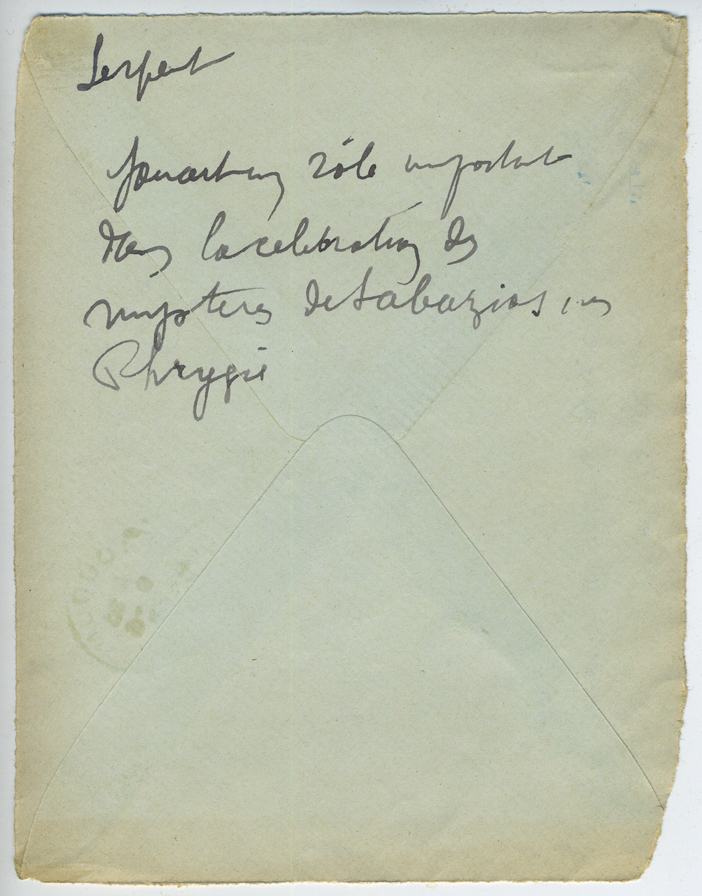 Serpent
jouait un rôle important
dans la celebration des
mysteres de Sabazios en
Phrygie